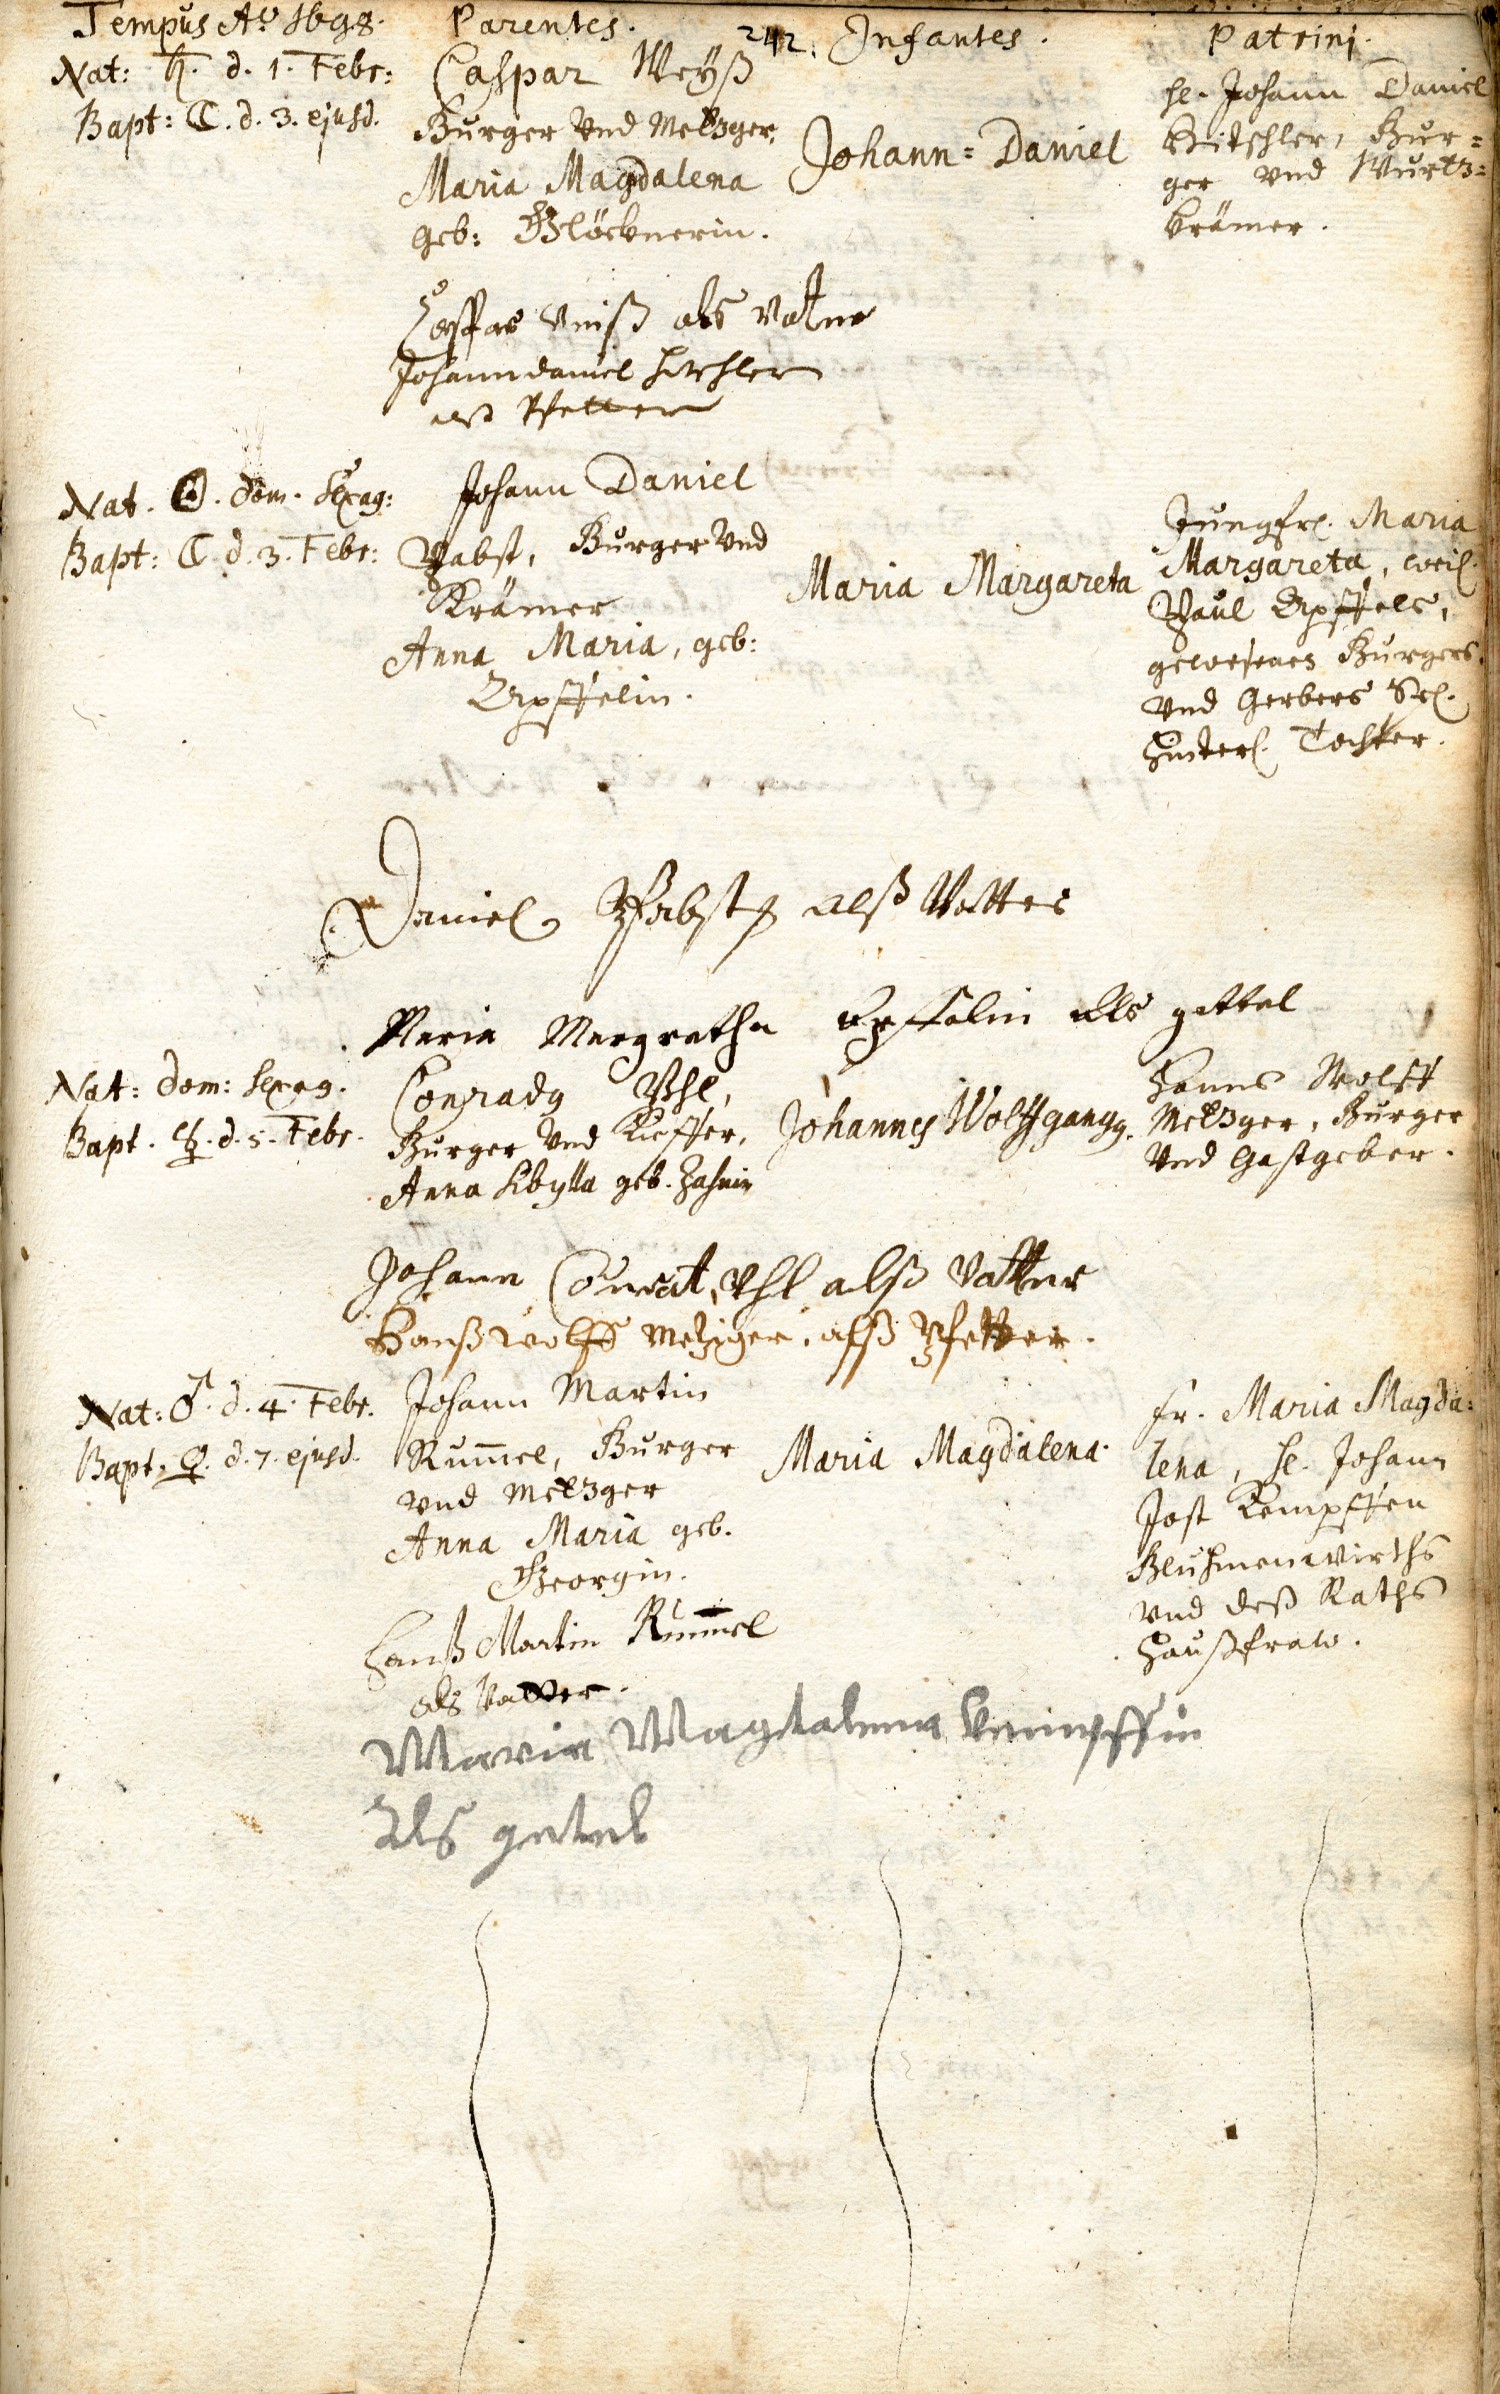 242.
Tempus Aº 1698.
Parentes.
Infantes.
Patrini.
Nat: ♄. d. 1. Febr:
Bapt: ☾. d. 3. ejusd.
Caspar Weyß
Burger Vnd Metzger,
Maria Magdalena
geb: Glöcknerin.
Johann=Daniel
H. Johann Daniel
Hitschler, Bur=
ger vnd Wurtz=
krämer.
als Vatter
Johann daniel Hitschler
als Pfetter
Nat. ☉. dom. Sexag:
Bapt: ☾ d. 3. Febr:
Johann Daniel
Pabst, Burger Vnd
Krämer
Anna Maria, geb:
Apffelin.
Maria Margareta
Jungfr. Maria
Margareta, weil.
Paul Apffels,
gewesenen Burgers
Vnd Gerbers Sel.
Hinterl. Tochter.
Daniel Pfabst alß Vatter
Maria Margretha Epffelin als gettel
Nat: dom: Sexag.
Bapt. ☿. d. 5. Febr.
Conrady Vhl,
Burger Vnd Kieffer,
Anna Sibylla geb. Zahnin
Johannes Wolffgangg.
Hanns Wolff
Metzger, Burger
Vnd Gastgeber.
Johann Conrat Vhl alß Vatter
Hanß wolff Metziger. alß Pfetter.
Nat: ♂. d. 4. Febr.
Bapt. ♀. d. 7. ejusd.
Johann Martin
Rum̄el, Burger
vnd Metzger
Anna Maria geb.
Georgin.
Maria Magdalena.
Fr. Maria Magda=
lena, H. Johann
Jost Kempffen
Bluhmenwirths
vnd deß Raths
Haußfraw.
Hanß Martin Rum̄el
als Vatter.
Maria Magdalena Kempffin
Als gettel